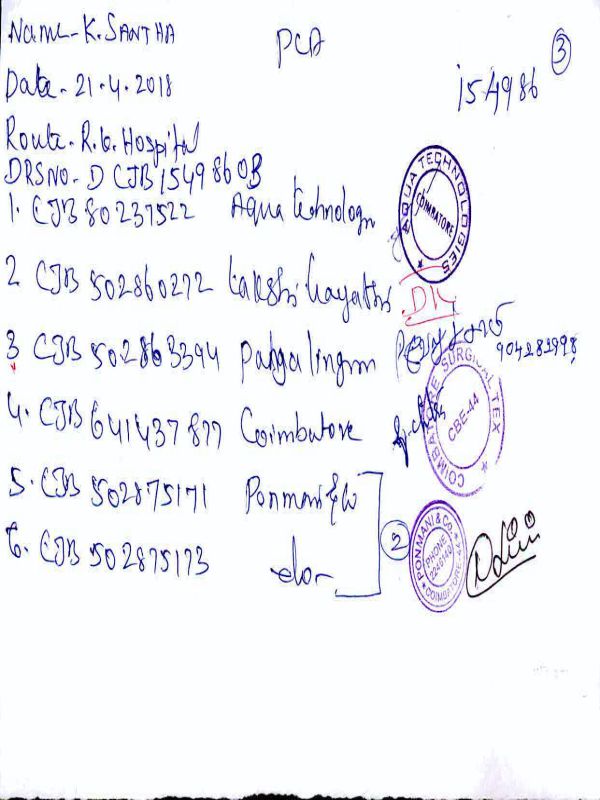 Name - K. SANTHA
PCA
3
Date - 21.4.2018
154986
Route - R.G. Hospital
DRSNO - D CJB 1549860B
1. CJB 80237522 Aqua technology
AQUA TECHNOLOGIES
COIMBATORE
2 CJB 502860272 Lakshi Gayathri
3 CJB 502863394
904281998
4. CJB 641437877 Coimbatore
COIMBATORE SURGICAL TEX
CBE-44
5. CJB 502875171 Ponmani & Co
6. CJB 502875173 do
2
PONMANI & CO
PHONE
COIMBATORE